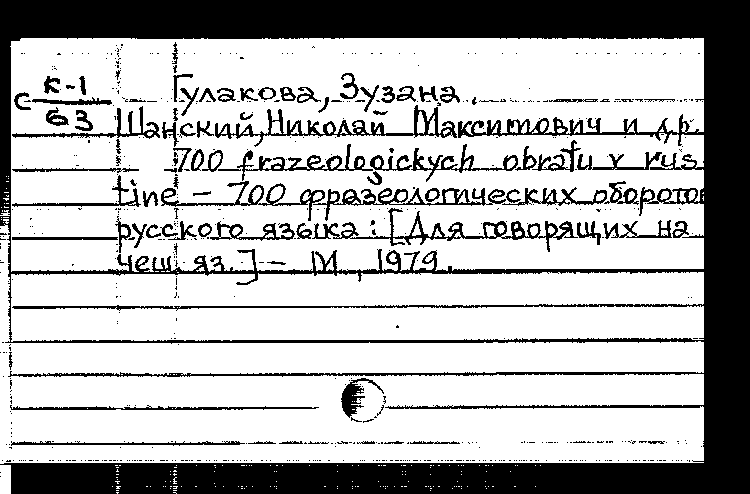 С К-1 Гулакова, Зузана.
63 Шанский, Николай Максимович и др.
700 frazeologickych obratu v rus
tine – 700 фразеологических оборотов
русского языка: [Для говорящих на
чеш. яз.] – М, 1979.